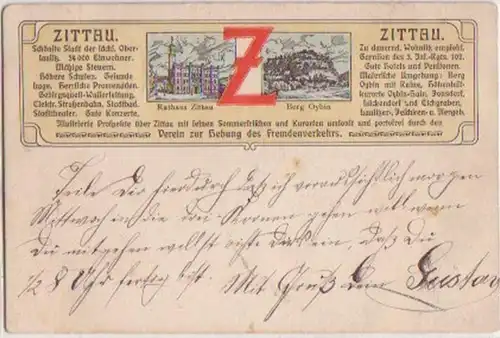 ZITTAU.
Schönste Stadt der sächs. Ober-
lausitz. 34 000 Einwohner.
Mäßige Steuern.
Höhere Schulen. Gesunde
Lage. Herrliche Promenaden.
Gebirgsquell-Wasserleitung.
Elektr. Straßenbahn. Stadtbad.
Stadttheater. Gute Konzerte.
Z
Rathaus Zittau
Berg Oybin
ZITTAU.
Zu dauernd. Wohnsitz empfohl.
Garnison des 3. Inf.-Regts. 102.
Gute Hotels und Pensionen.
Malerische Umgebung: Berg
Oybin mit Ruine, Höhenluft-
kurorte Oybin-Hain, Jonsdorf,
Lückendorf und Eichgraben,
Lausitzer
Illustrierte Prospekte über Zittau mit seinen Sommerfrischen und Kurorten umsonst und portofrei durch den
Verein zur Hebung des Fremdenverkehrs.
Teile Dir hierdurch daß ich voraussichtlich morgen
Mittwoch in die drei Kronen gehen will wenn
Du mitgehen willst dasein, daß Du
1/2 8 Uhr fertig bist. Mit Gruß Dein Gustav